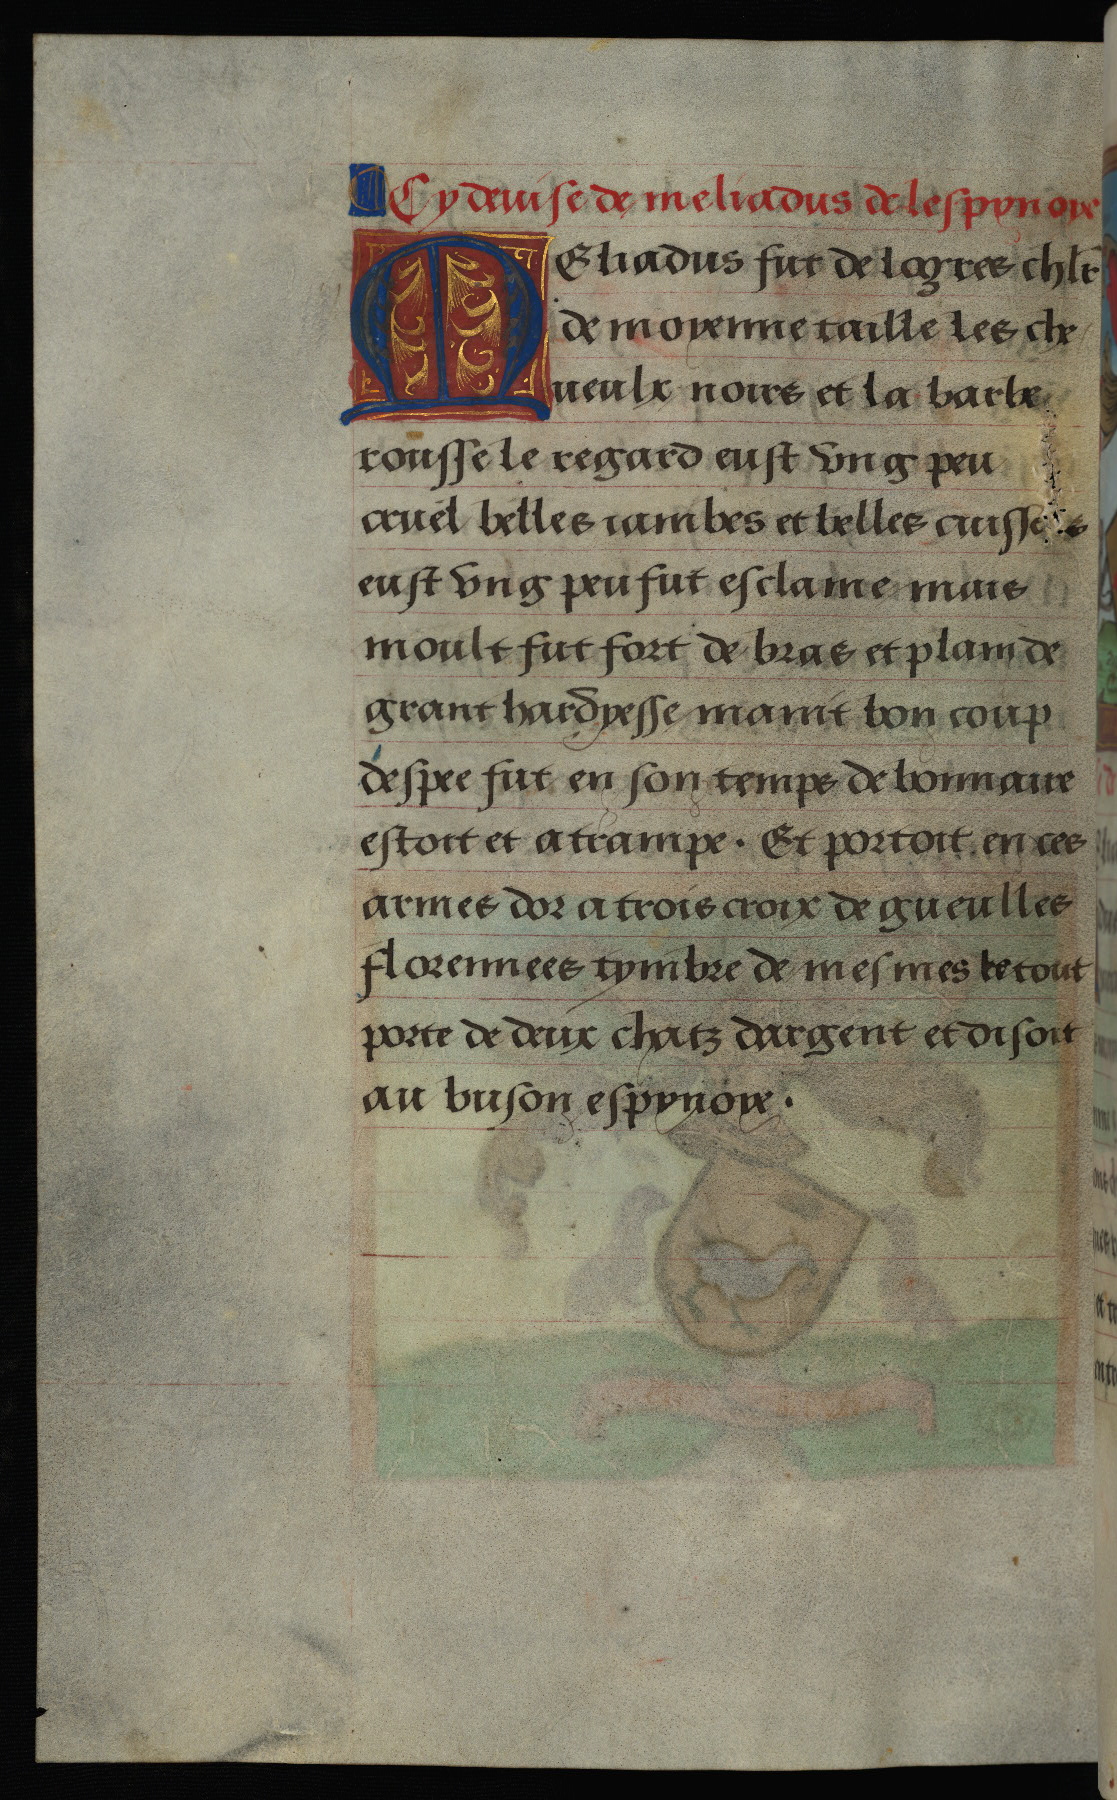 Cy deuise de meliadus de lespynoye
MEliadus fut de logres chlr̄
de moyenne taille les che
ueulx noirs et la barbe
rousse le regard eust vng peu
cruel belles iambes et belles cuisses
eust vng peu fut esclame mais
moult fut fort de bras et plain de
grant hardyesse manit bon coup
despee fut en son temps de bonnaire
estoit et atrampe. Et portoit en ces
armes dor a trois croix de gueulles
florennees tymbre de mesmes le tout
porte de deux chatz dargent et disoit
au buson espynoye.